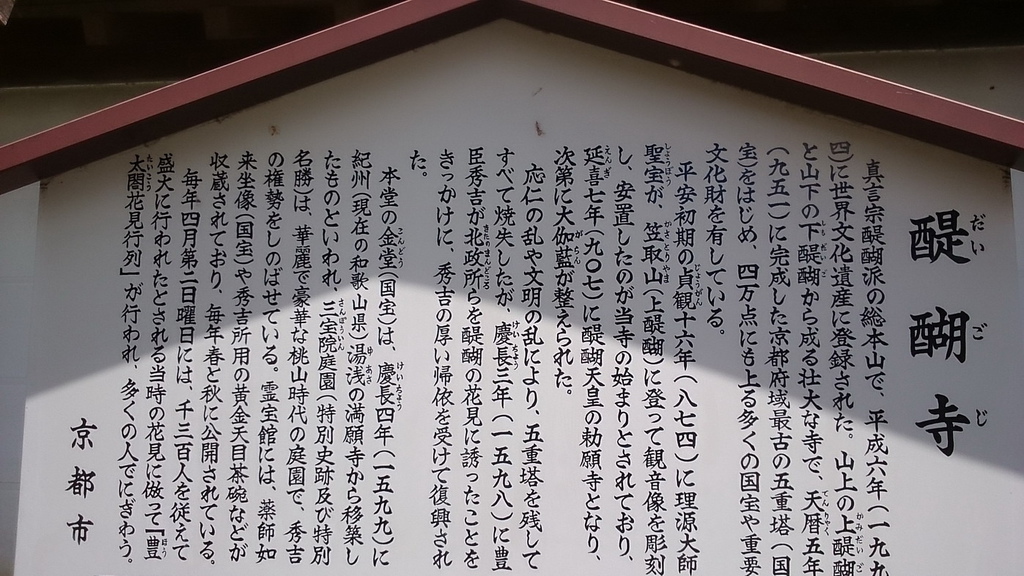 醍醐寺
だいごじ
真言宗醍醐派の総本山で、平成六年（一九九
四）に世界文化遺産に登録された。山上の上醍醐
と山下の下醍醐から成る壮大な寺で、天暦五年
（九五一）に完成した京都府域最古の五重塔（国
宝）をはじめ、四万点にも上る多くの国宝や重要
文化財を有している。
平安初期の貞観十六年（八七四）に理源大師
聖宝が、笠取山（上醍醐）に登って観音像を彫刻
し、安置したのが当寺の始まりとされており、
延喜七年（九〇七）に醍醐天皇の勅願寺となり、
次第に大伽藍が整えられた。
応仁の乱や文明の乱により、五重塔を残して
すべて焼失したが、慶長三年（一五九八）に豊
臣秀吉が北政所らを醍醐の花見に誘ったことを
きっかけに、秀吉の厚い帰依を受けて復興され
た。
本堂の金堂（国宝）は、慶長四年（一五九九）に
紀州（現在の和歌山県）湯浅の満願寺から移築し
たものといわれ、三宝院庭園（特別史跡及び特別
名勝）は、華麗で豪華な桃山時代の庭園で、秀吉
の権勢をしのばせている。霊宝館には、薬師如
来坐像（国宝）や秀吉所用の黄金天目茶碗などが
収蔵されており、毎年春と秋に公開されている。
毎年四月第二日曜日には、千三百人を従えて
盛大に行われたとされる当時の花見に倣って「豊
太閤花見行列」が行われ、多くの人でにぎわう。
京都市